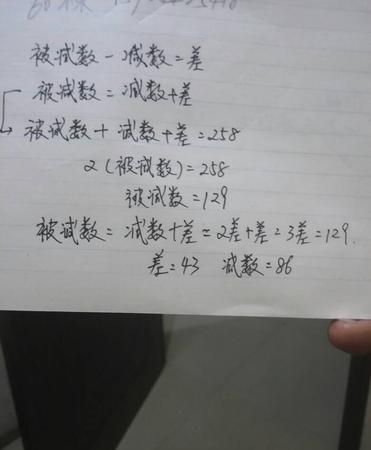 被减数－减数=差
被减数=减数+差
被减数+减数+差=258
2(被减数)=258
被减数=129
被减数=减数+差=2差+差=3差=129.
差=43 减数=86